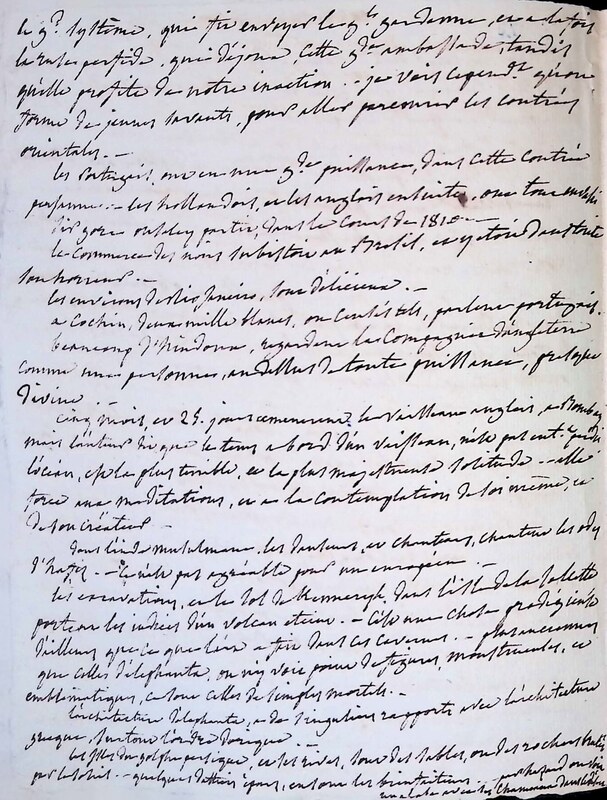 le gd systême, qui fit envoyer le gal gardanne, et a la fois
la ruse perfide, qui déjoua, cette gde ambassade, tandis
qu'elle profite de notre inaction. - je vois cepend.t qu'on
forme de jeunes savants, pour aller parcourir les contrées
orientales. -
les Portugais, ont eu une gde puissance, dans cette contrée
persanne. - les hollandois, et les anglois ensuite, ont tout
partir, dans le cours de 1810 -
le commerce des noirs subsiste au Brésil, et y étoit dans toute
son horreur. -
les environs de Rio Janeiro, sont délicieux. -
a Cochin, deux mille blancs, ou parlent portugais.
beaucoup d'hindous, regardent la Compagnie d'angleterre
comme une personne, au dessus de toute puissance, presque
divine. -
Cinq mois, et 25. jours amenerent le vaisseau anglois, a Bombay
mais l'auteur dit que le tems a bord d'un vaisseau, n'est pas perdu
l'océan, est la plus terrible, et la plus majestueuse solitude - elle
force aux méditations, et a la contemplation de soi même, et
de son créateur -
dans l'inde musulmane, les danseurs, et chanteurs, chantent les odes
d'hafiz - - Ce n'est pas agréable pour un européen. -
les excavations, et le sol de Kennery, dans l'isle de la Salsette
portent les indices d'un volcan éteint. - C'est une chose prodigieuse
d'ailleurs que ce que l'art a fait dans ces cavernes. - plus anciennes
que celles d'élephanta, on n'y voit point de figures monstrueuses, et
emblématiques, et sont celles de simples mortels. -
l'architecture d'élephanta, a de singuliers rapports avec l'architecture
grecque, surtout l'ordre dorique -
les isles du golphe persique, et ses rives, sont des sables, ou des rochers brulés
par le soleil - quelques dattiers épars, en sont les bienfaiteurs. -